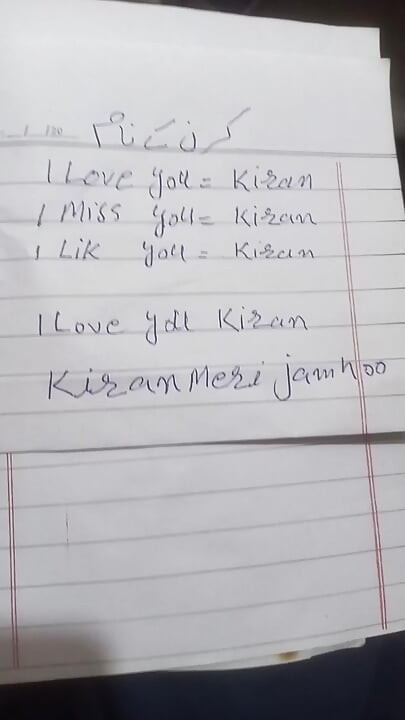 کرن کے نام
I Love you = Kiran
I Miss you = Kiran
I Lik you = Kiran
I Love you Kiran
Kiran Meri jam hoo